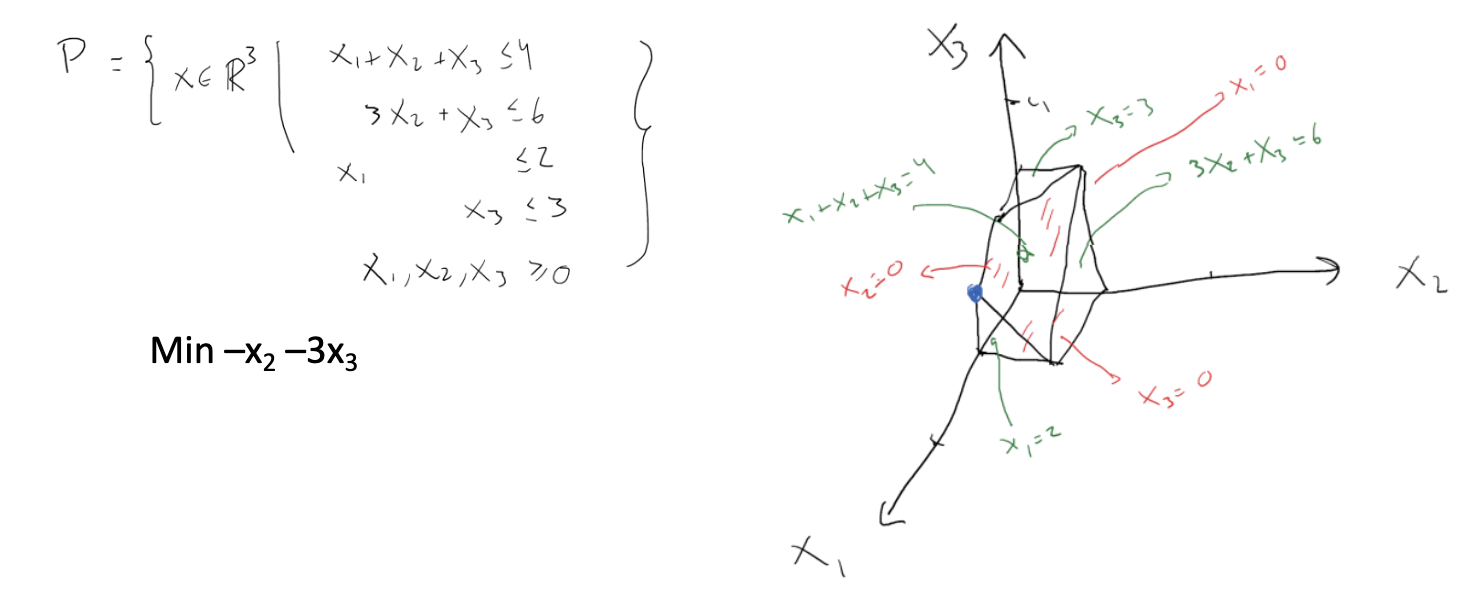 P = { x ∈ ℝ³ | x₁ + x₂ + x₃ ≤ 4
3x₂ + x₃ ≤ 6
x₁ ≤ 2
x₃ ≤ 3
x₁, x₂, x₃ ≥ 0 }
Min –x₂ –3x₃
X₃
4
x₃ = 3
x₁ = 0
3x₂ + x₃ = 6
x₁ + x₂ + x₃ = 4
x₂ = 0
X₂
x₃ = 0
x₁ = 2
X₁